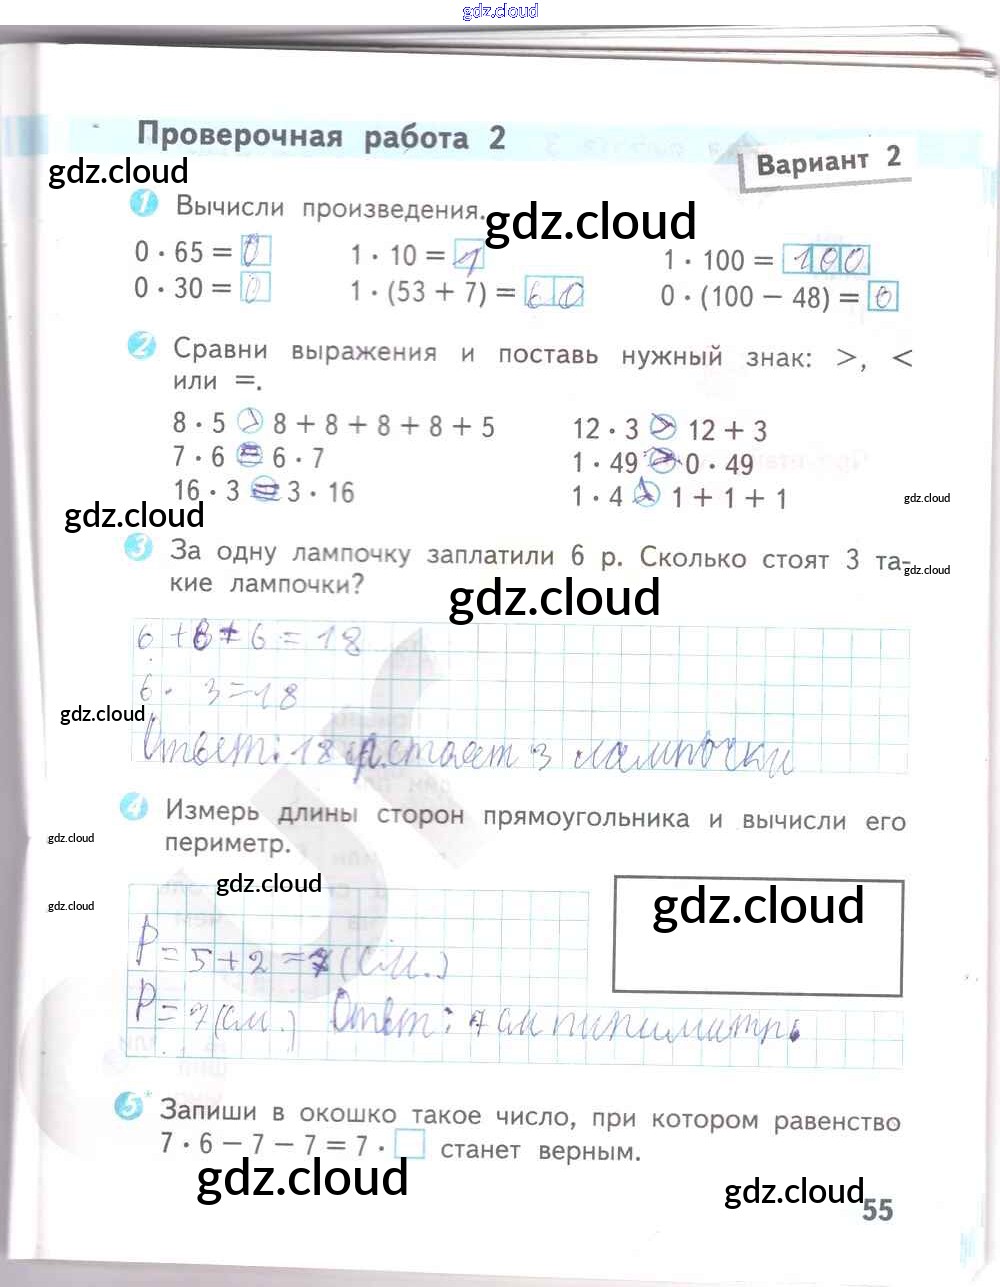 gdz.cloud
Проверочная работа 2
Вариант 2
gdz.cloud
1 Вычисли произведения.
gdz.cloud
0 · 65 = 0 1 · 10 = 1 1 · 100 = 100
0 · 30 = 0 1 · (53 + 7) = 60 0 · (100 − 48) = 0
2 Сравни выражения и поставь нужный знак: >, <
или =.
8 · 5 > 8 + 8 + 8 + 8 + 5 12 · 3 > 12 + 3
7 · 6 = 6 · 7 1 · 49 > 0 · 49
16 · 3 = 3 · 16 1 · 4 > 1 + 1 + 1
gdz.cloud
gdz.cloud
3 За одну лампочку заплатили 6 р. Сколько стоят 3 та-
кие лампочки?
gdz.cloud
gdz.cloud
6 + 6 + 6 = 18
6 · 3 = 18
gdz.cloud
Ответ: 18 р. стоят 3 лампочки
4 Измерь длины сторон прямоугольника и вычисли его
периметр.
gdz.cloud
gdz.cloud
gdz.cloud
gdz.cloud
P = 5 + 2 = 7 (см.)
P = 7 (см.) Ответ: 7 см пипиматр.
5* Запиши в окошко такое число, при котором равенство
7 · 6 − 7 − 7 = 7 · □ станет верным.
gdz.cloud
gdz.cloud
55